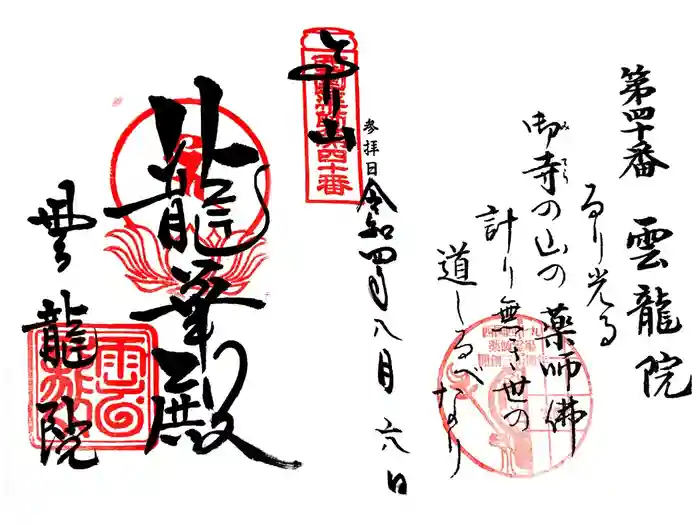 第四十番 雲龍院
るり光る
御寺の山の 薬師佛
みてら
計り無き世の
道しるべなり
参拝日 令和四年八月六日
西国薬師第四十番
龍華殿
雲龍院